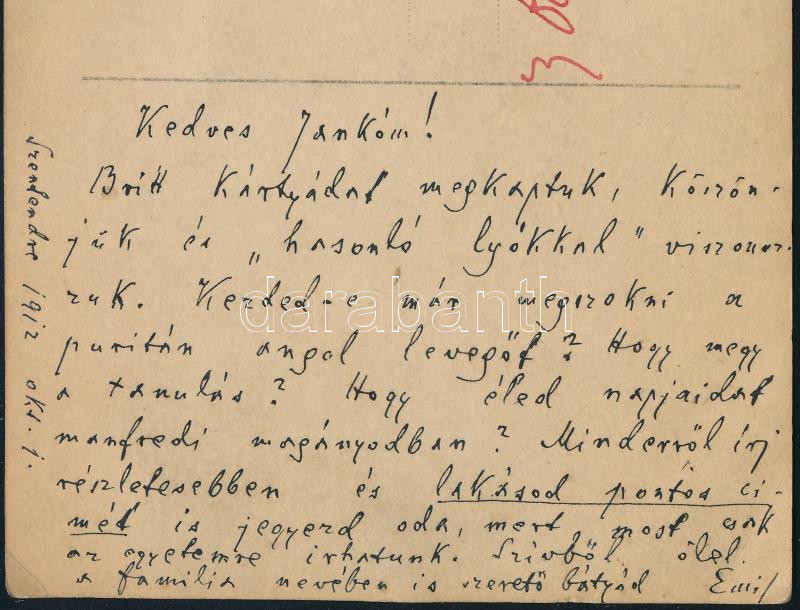 Kedves Jankóm!
Britt kártyádat megkaptuk, köszön-
jük és „hasonló lyókkal" viszonoz-
zuk. Kezded-e már megszokni a
puritán angol levegőt? Hogy megy
a tanulás? Hogy éled napjaidat
manfredi magányodban? Minderről írj
részletesebben és lakásod pontos ci-
mét is jegyezd oda, mert most csak
az egyetemre irhatunk. Szívből ölel
a familia nevében is szerető bátyád Emil
Szentendre 1912 okt. 1.
darabanth